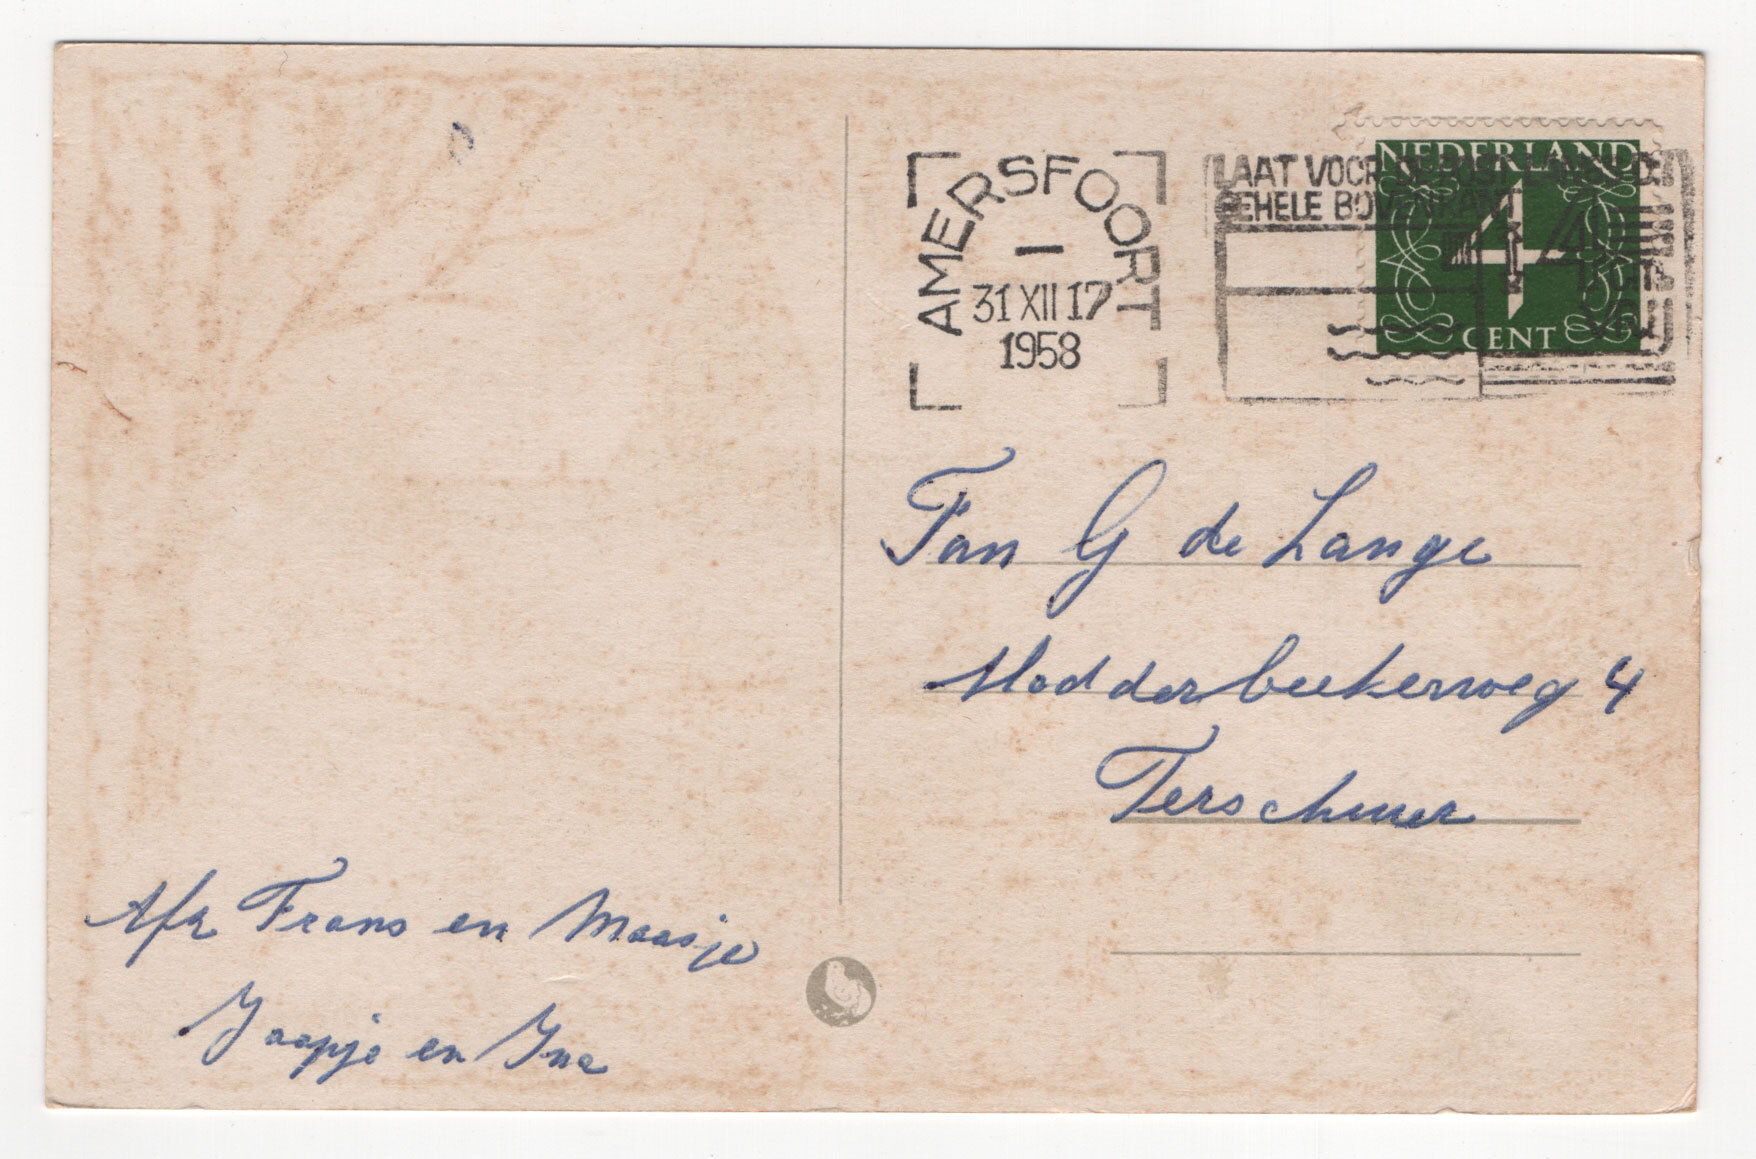 AMERSFOORT
31 XII 17
1958
LAAT VOOR DE POST
GEHELE BOVENKANT
VRIJ
NEDERLAND
4
CENT
Fam G de Lange
Modderbeekerweg 4
Terschuur
Afz Frans en Maasje
Jaapje en Ina